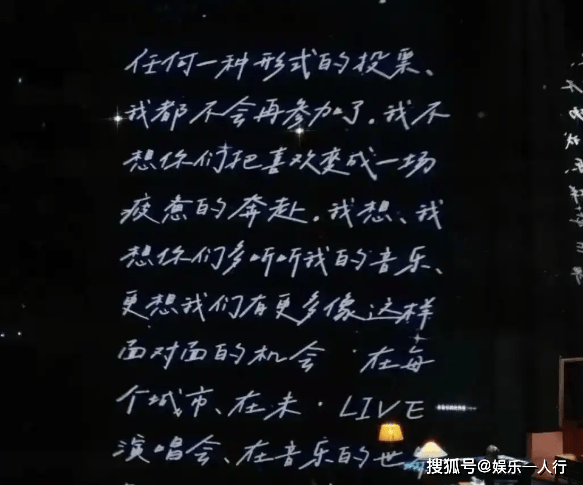 任何一种形式的投票、
我都不会再参加了。我不
想你们把喜欢变成一场
疲惫的奔赴。我想、我
想你们多听听我的音乐、
更想我们有更多像这样
面对面的机会 在每
个城市、在未·LIVE
演唱会、在音乐的世
搜狐号@娱乐一人行